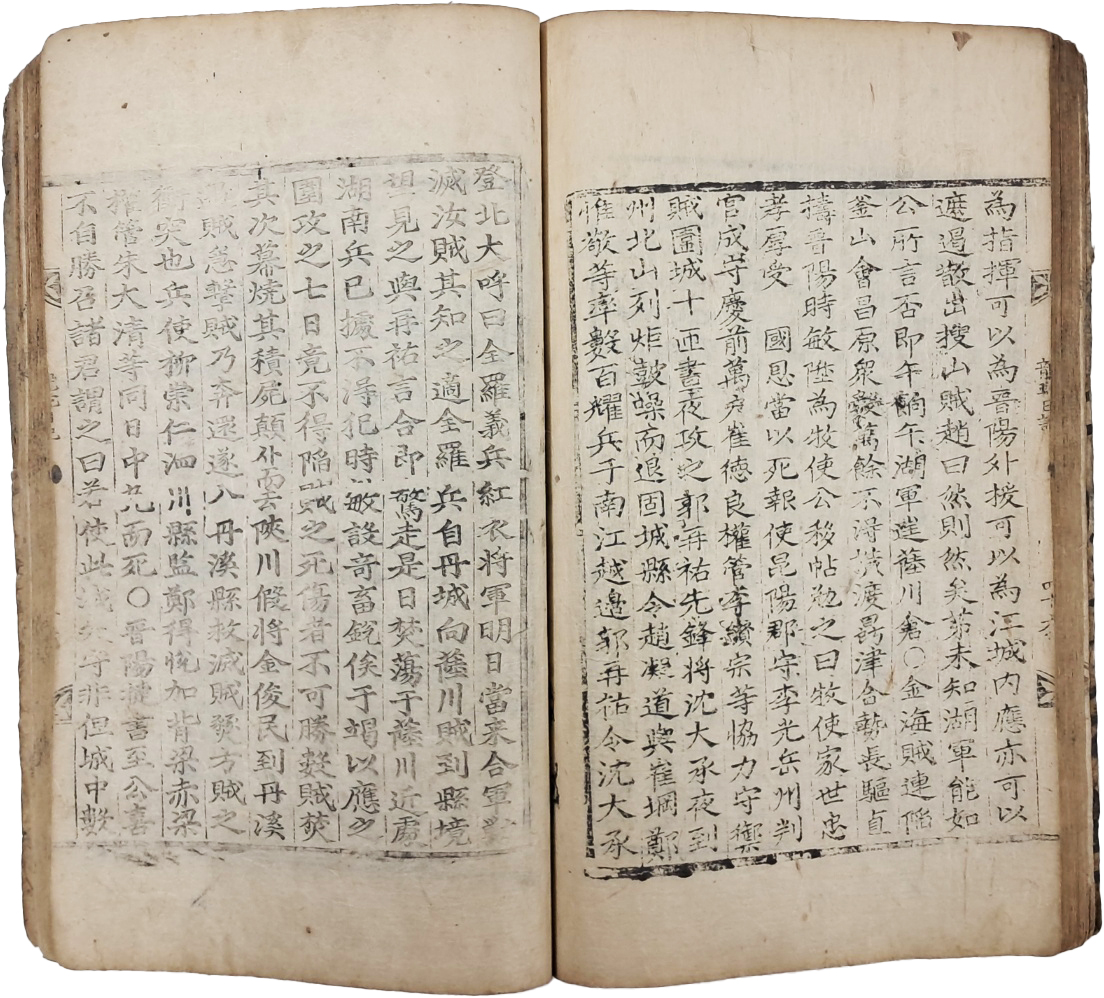 為指揮可以為晋陽外援可以為江城内應亦可以
遮遏散出搜山賊趙曰然則然矣第未知湖軍能如
公所言否即午餉午湖軍進薩川倉○金海賊連陷
釜山會昌原衆數萬餘不得攔渡鼎津合勢長驅直
擣晋陽時敏陞為牧使公移帖勉之曰牧使家世忠
孝厚受 國恩當以死報使昆陽郡守李光岳州判
官成守慶前萬户崔徳良權管李鑽宗等恊力守禦
賊圍城十匝晝夜攻之郭再祐先鋒將沈大承夜到
州北山列炬皷噪而退固城縣令趙凝道與崔堈鄭
惟敬等率數百耀兵于南江越邊郭再祐令沈大承
登北大呼曰全羅義兵紅衣將軍明日當来合軍
滅汝賊其知之適全羅兵自丹城向薩川賊到縣境
望見之與再祐言合即驚走是日焚蕩于薩川近處
湖南兵已據不得犯時敏設竒畜銳俟于竭以應之
圍攻之七日竟不得陷賊之死傷者不可勝數賊焚
其次幕燒其積屍顛仆而去陜川假將金俊民到丹溪
賊急擊賊乃奔還遂入丹溪縣救滅賊發方賊之
衝突也兵使栁崇仁泗川縣監鄭得恱加背梁赤梁
權管朱大清等同日中丸而死○晋陽捷書至公喜
不自勝召諸君謂之曰若使此城失守非但城中數